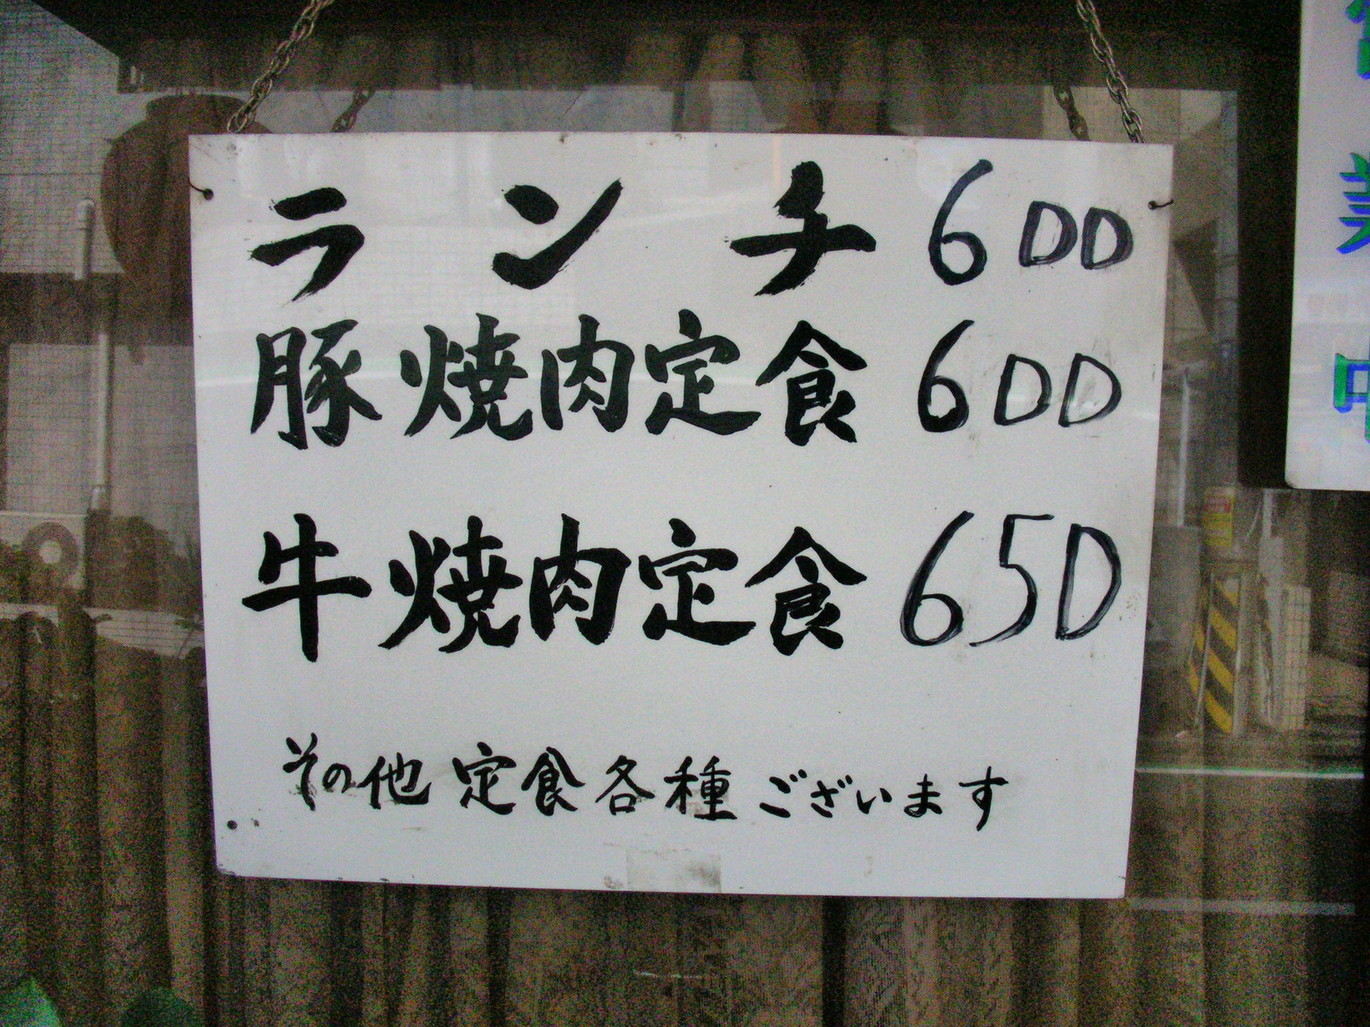 ランチ 600
豚焼肉定食 600
牛焼肉定食 650
その他 定食各種 ございます
営業中